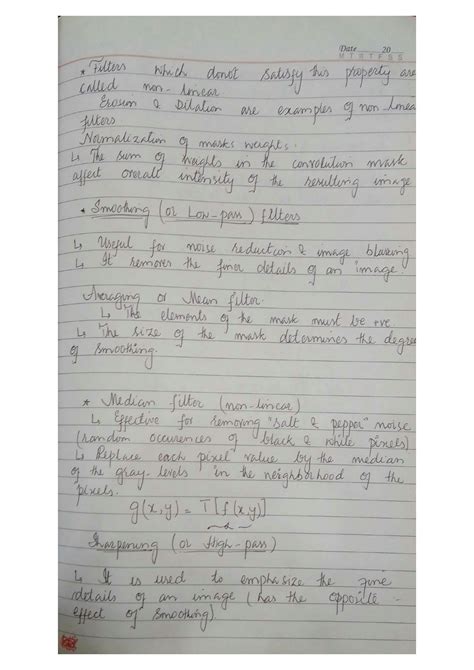 Date 20
M T W T F S S
* Filters which donot satisfy this property are
called non-linear
Erosion & Dilation are examples of non-linear
filters
Normalization of mask weights:
↳ The sum of weights in the convolution mask
affect overall intensity of the resulting image
* Smoothing (or Low-pass) filters
↳ Useful for noise reduction & image blurring
↳ It removes the finer details of an image
Averaging or Mean filter.
↳ The elements of the mask must be +ve
↳ The size of the mask determines the degree
of smoothing.
* Median filter (non-linear)
↳ Effective for removing "salt & pepper" noise
(random occurences of black & white pixels)
↳ Replace each pixel value by the median
of the gray levels in the neighborhood of the
pixels.
g(x,y) = T[f(x,y)]
Sharpening (or High-pass)
↳ It is used to emphasize the fine
details of an image (has the opposite
effect of smoothing)